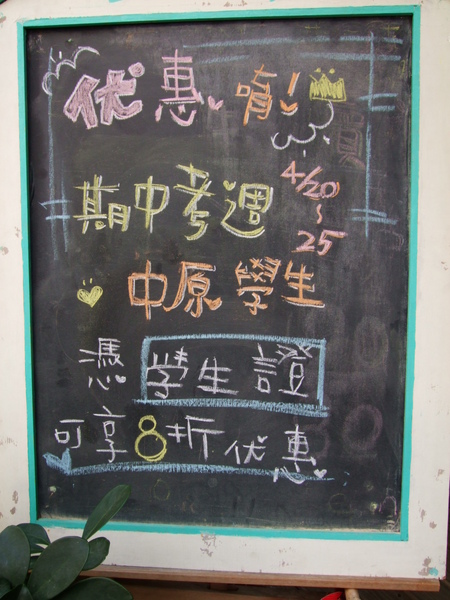 优惠唷!
期中考週 4/20~25
中原學生
憑學生證
可享8折优惠